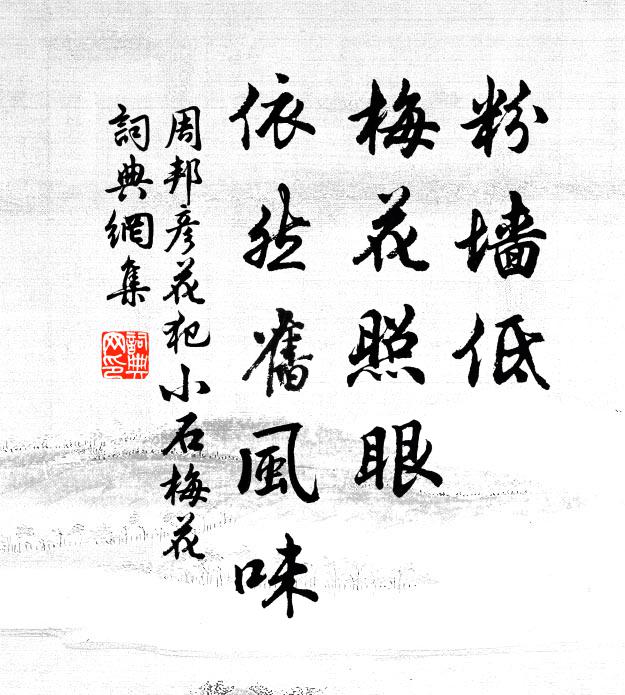 粉墙低
梅花照眼
依然舊風味
周邦彥花犯小石梅花
詞典網集
詞典网印